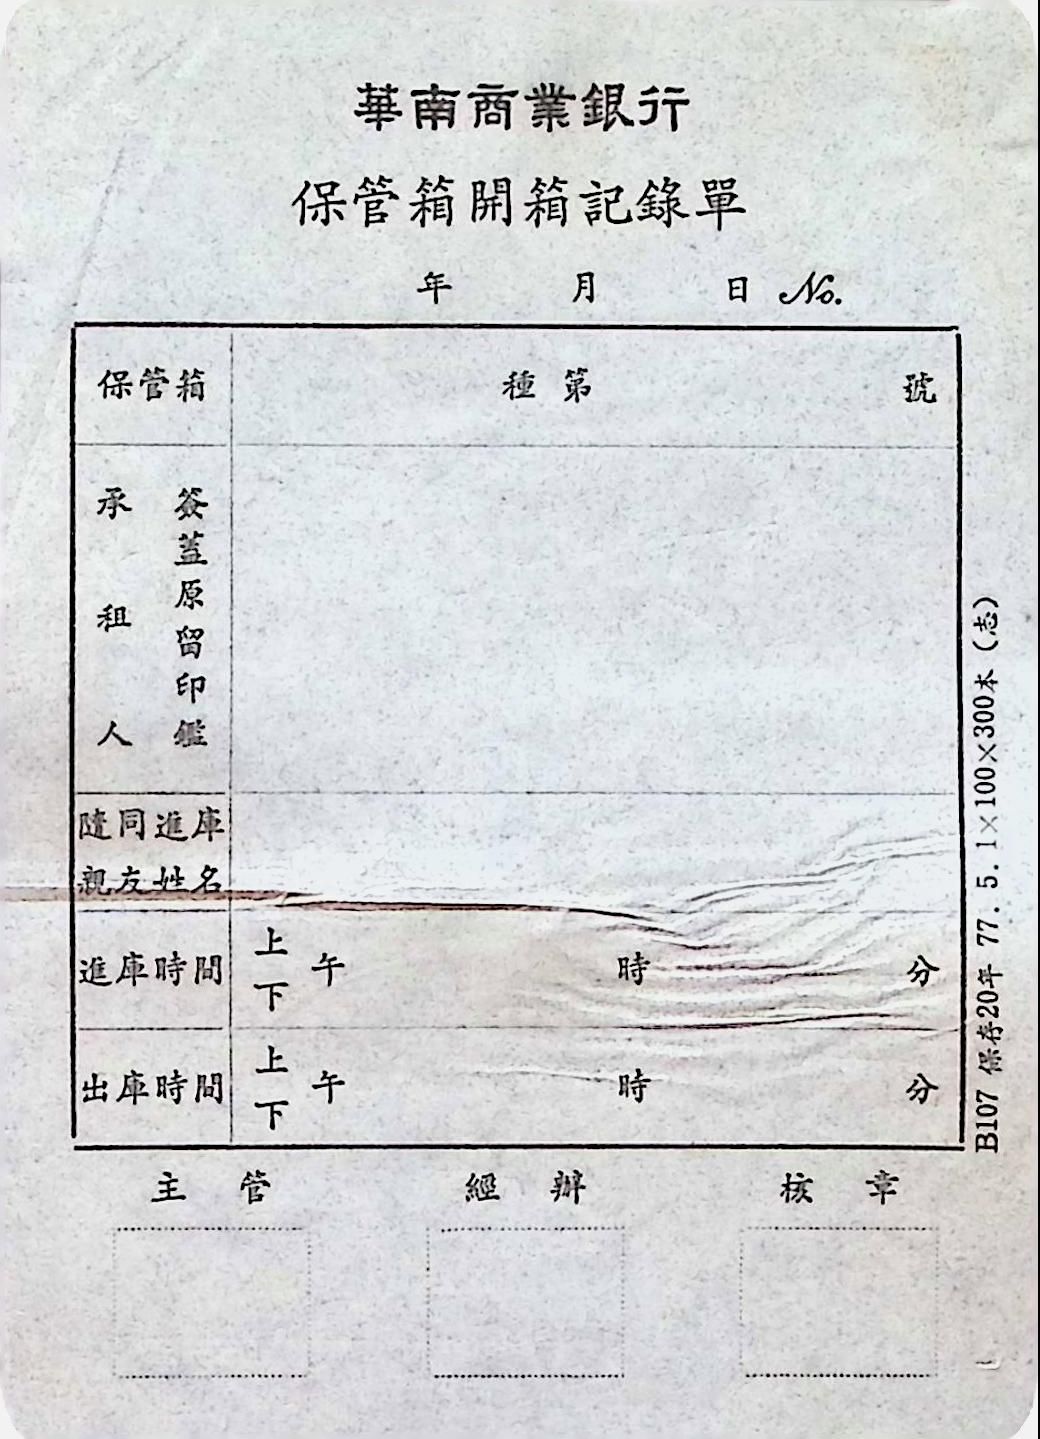 華南商業銀行
保管箱開箱記錄單
年 月 日 No.
保管箱 種第 號
承租人
簽蓋原留印鑑
隨同進庫
親友姓名
進庫時間 上下午 時 分
出庫時間 上下午 時 分
主管 經辦 核章
B107 保存20年 77.5.1×100×300本（志）